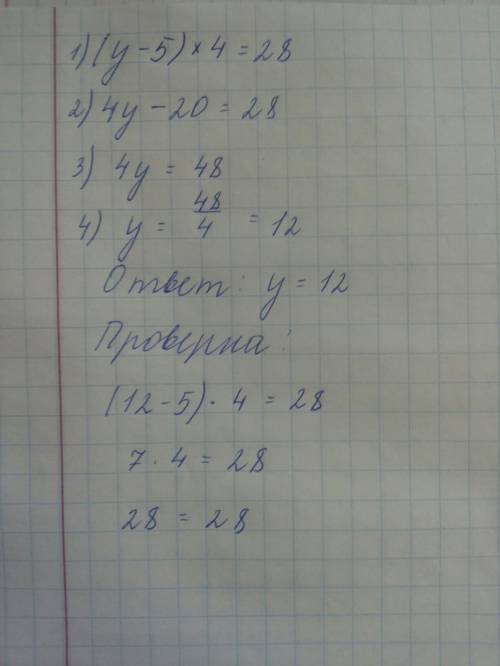 1) (y-5)×4=28
2) 4y-20=28
3) 4y=48
4) y=48/4=12
Ответ: y=12
Проверка:
(12-5)·4=28
7·4=28
28=28